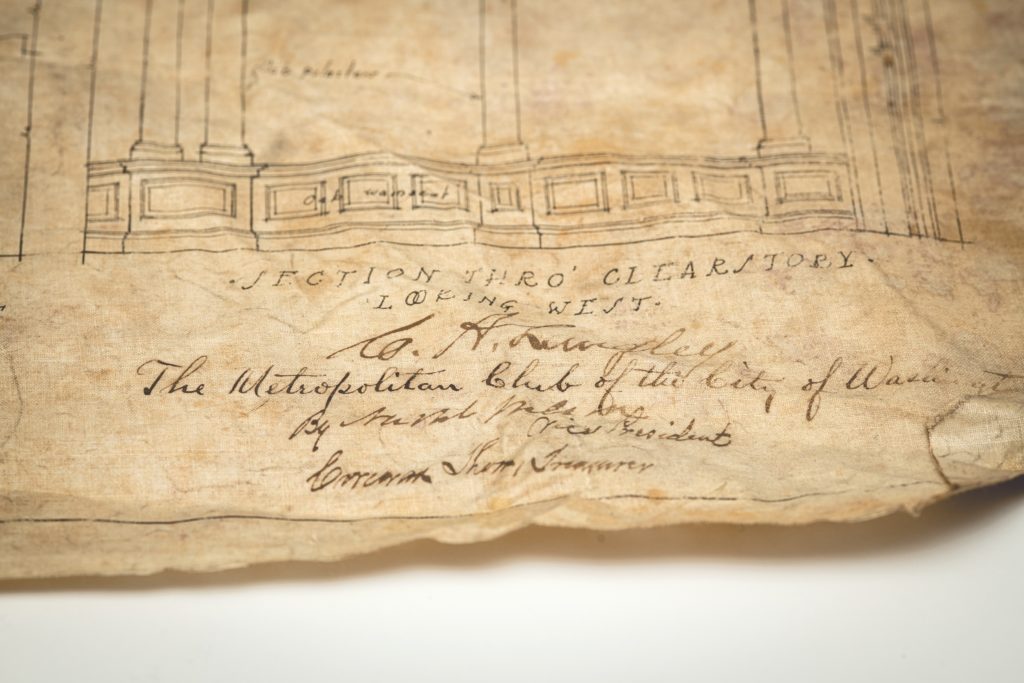 oak wainscot
·SECTION THRO' CLEARSTORY·
·LOOKING WEST·
C. A. Langley
The Metropolitan Club of the City of Washingt
By
Vice President
Corcoran Thom, Treasurer